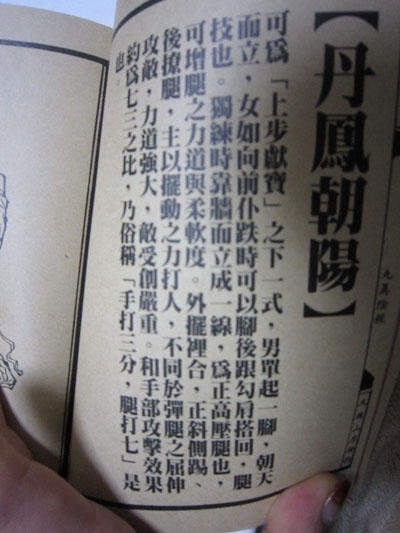 【丹鳳朝陽】
可為「上步獻寶」之下一式，男單起一腳，朝天
而立，女如向前仆跌時可以腳後跟勾肩搭回，腿
技也。獨練時靠牆而立成一線，為正高壓腿也，
可增腿之力道與柔軟度。外擺裡合，正斜側踢、
後撩腿，主以擺動之力打人，不同於彈腿之屈伸
攻敵，力道強大，敵受創嚴重。和手部攻擊效果
約為七三之比，乃俗稱「手打三分，腿打七」是
也。